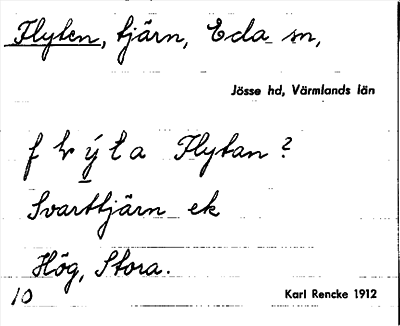 Flyten, tjärn, Eda sn,
Jösse hd, Värmlands län
Flytan?
Svarttjärn ek
Hög, Stora.
10
Karl Rencke 1912